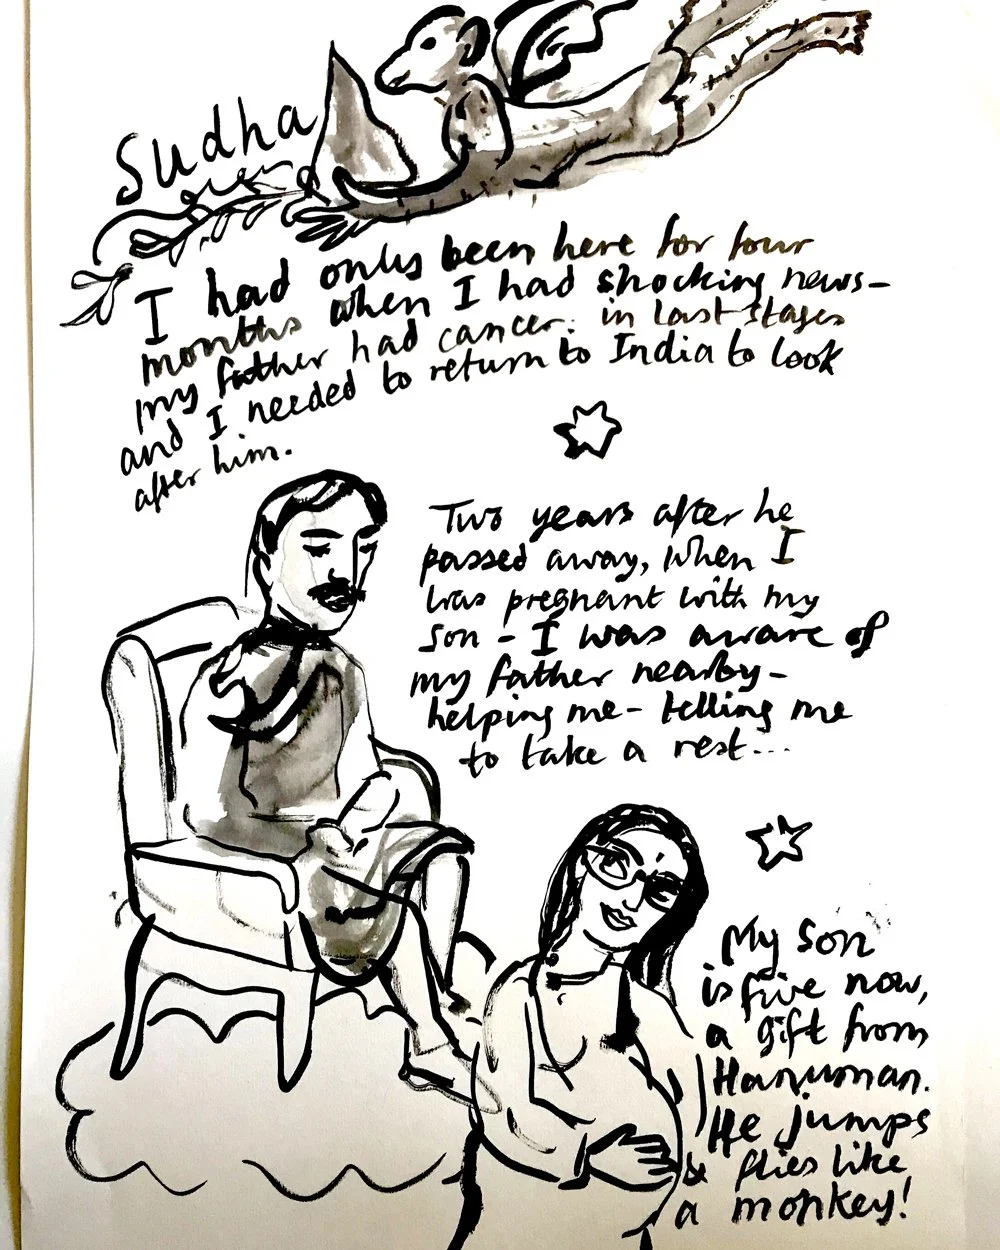 Sudha
I had only been here for four
months when I had shocking news-
my father had cancer. in last stages
and I needed to return to India to look
after him.
Two years after he
passed away, when I
was pregnant with my
son - I was aware of
my father nearby -
helping me - telling me
to take a rest...
My son
is five now,
a gift from
Hanuman.
He jumps
& flies like
a monkey!